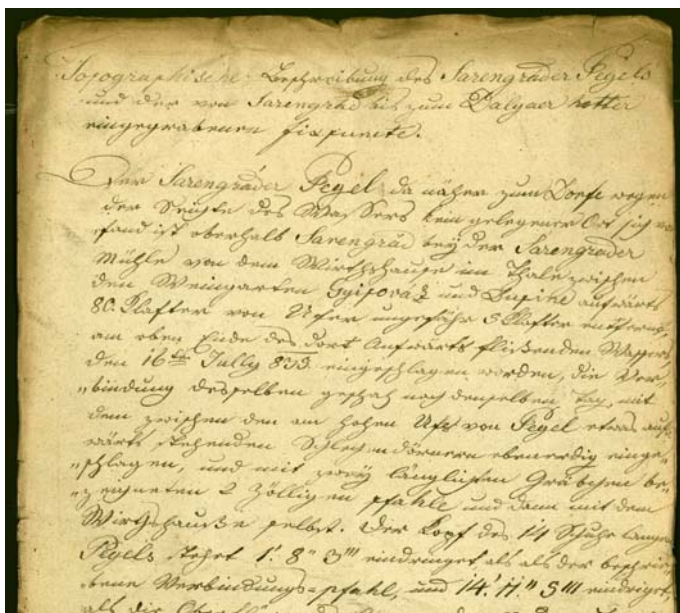 Topographische Beschreibung des Sarengrader Pegels
und der von Sarengrad bis zum Dalyaer hotter
eingegrabenen fixpuncte.
Der Sarengráder Pegel da näher zum Dorfe wegen
der Seuchte des Wassers kein gelegener Ort sich vor
fand ist oberhalb Sarengrád bey der Sarengrader
Mühle von dem Wirthshause im Thale zwischen
den Weingarten und aufwärts
80. Klafter von Ufer ungefähr 5 Klafter entfernt,
am oben Ende des dort Aufwärts fließenden Wassers
den 16ten Jully 833. eingeschlagen worden, die Ver=
"bindung desselben geschah noch denselben Tag, mit
dem zwischen den am hohen Ufer von Pegel etwas auf
wärts stehenden Schlehendörnern ebenerdig einge=
"schlagen, und mit zwey länglichten Gräbchen be=
"zeichneten 2 Zölligen pfahle und dann mit dem
Wirthshauße selbst. Der Kopf des 14 Schuhe langen
Pegels stehet 1'. 8" 3''' niedriger als der beschrie
bene Verbindungs=pfahl, und 14'. 11." 5''' niedriger
als die